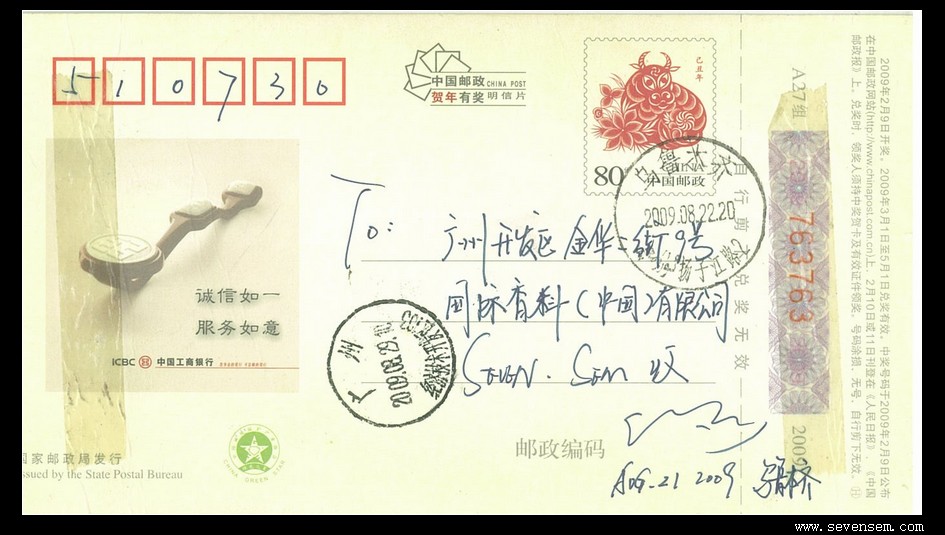 510730
中国邮政 CHINA POST
贺年有奖 明信片
己丑年
80
CHINA
中国邮政
乌鲁木齐
2009.08.22.20
扬子江路2
To: 广州开发区金华二街9号
国际香料(中国)有限公司
SEVEN. SEM 收
诚信如一
服务如意
ICBC 中国工商银行
广东
2009.08.29.
邮政编码
AUG-21 2009
国家邮政局发行
ssued by the State Postal Bureau
自行剪下兑奖无效
A27组
763763
2009
2009年2月9日开奖。2009年3月1日至5月1日兑奖有效,中奖号码于2009年2月9日公布
在中国邮政网站(http://www.chinapost.com.cn)上,2月10日或11日刊登在《人民日报》、《中国
邮政报》上。兑奖时,领奖人须持中奖贺卡及有效证件领奖。号码涂损、无号、自行剪下无效。
www.sevensem.com